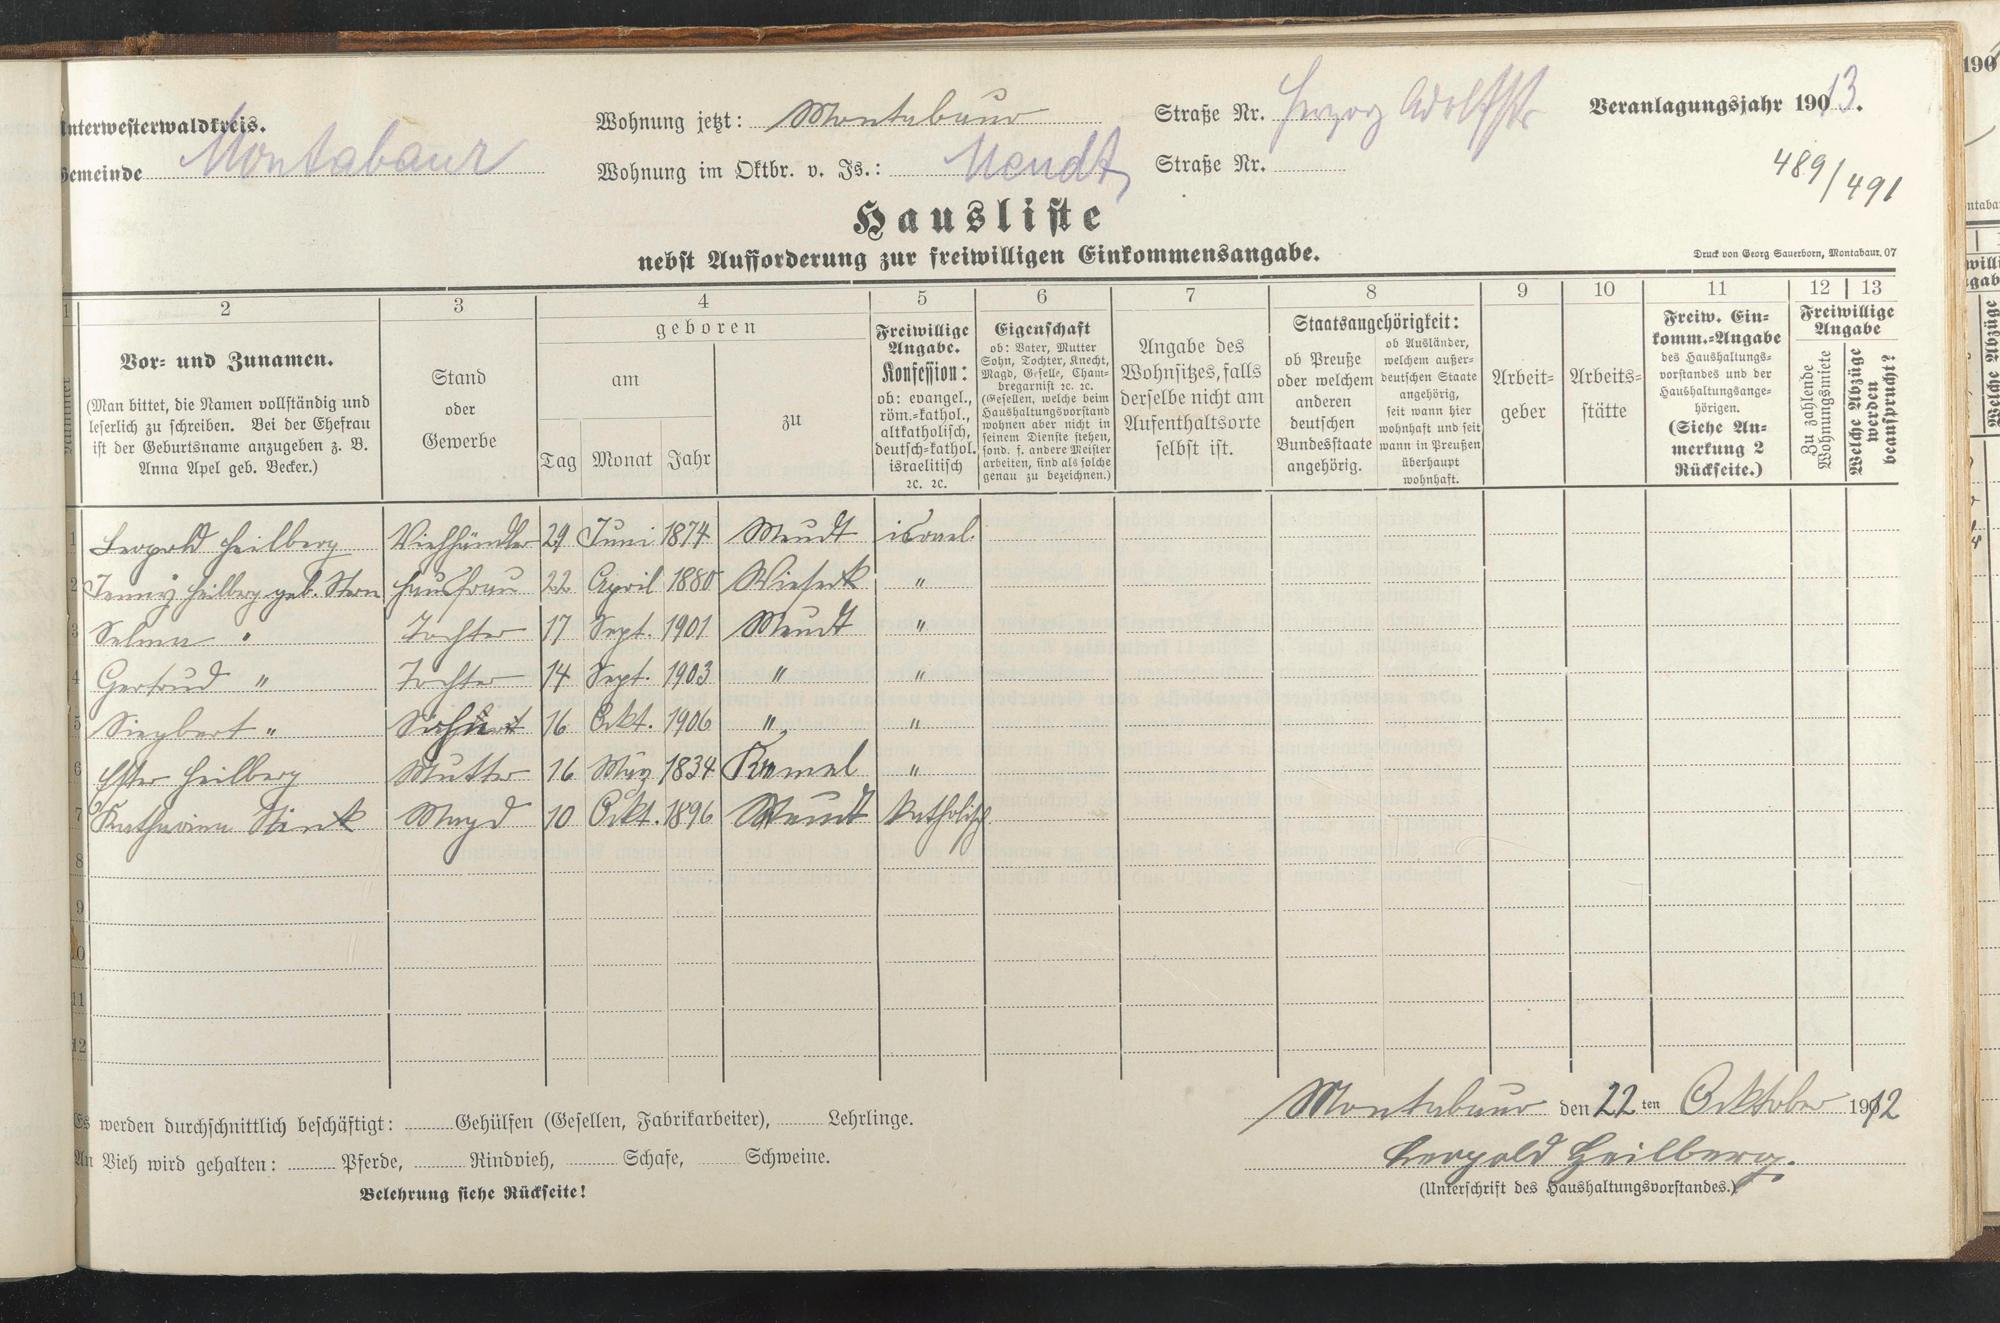 Unterwesterwaldkreis.
Gemeinde Montabaur
Wohnung jetzt: Montabaur
Wohnung im Oktbr. v. Js.: Meudt
Straße Nr. Herzog Adolfstr
Straße Nr.
Veranlagungsjahr 1913.
489/491
Hausliste
nebst Aufforderung zur freiwilligen Einkommensangabe.
Druck von Georg Sauerborn, Montabaur. 07
1 2 3 4 5 6 7 8 9 10 11 12 13
Nummer
Vor- und Zunamen.
(Man bittet, die Namen vollständig und
leserlich zu schreiben. Bei der Ehefrau
ist der Geburtsname anzugeben z. B.
Anna Apel geb. Becker.)
Stand
oder
Gewerbe
geboren
am
Tag Monat Jahr
zu
Freiwillige
Angabe.
Konfession:
ob: evangel.,
röm.-kathol.,
altkatholisch,
deutsch-kathol.
israelitisch
ꝛc. ꝛc.
Eigenschaft
ob: Vater, Mutter
Sohn, Tochter, Knecht,
Magd, Geselle, Cham-
bregarnist ꝛc. ꝛc.
(Gesellen, welche beim
Haushaltungsvorstand
wohnen aber nicht in
seinem Dienste stehen,
sond. f. andere Meister
arbeiten, sind als solche
genau zu bezeichnen.)
Angabe des
Wohnsitzes, falls
derselbe nicht am
Aufenthaltsorte
selbst ist.
Staatsangehörigkeit:
ob Preuße
oder welchem
anderen
deutschen
Bundesstaate
angehörig.
ob Ausländer,
welchem außer-
deutschen Staate
angehörig,
seit wann hier
wohnhaft und seit
wann in Preußen
überhaupt
wohnhaft.
Arbeit-
geber
Arbeits-
stätte
Freiw. Ein-
komm.-Angabe
des Haushaltungs-
vorstandes und der
Haushaltungsange-
hörigen.
(Siehe An-
merkung 2
Rückseite.)
Freiwillige
Angabe
Zu zahlende
Wohnungsmiete
Welche Abzüge
werden
beansprucht?
1 Leopold Heilberg Viehhändler 29 Juni 1874 Meudt israel.
2 Jenny Heilberg geb. Stern Hausfrau 22 April 1880 Wieseck "
3 Selma " Tochter 17 Sept. 1901 Meudt "
4 Gertrud " Tochter 14 Sept. 1903 " "
5 Siegbert " 16 Okt. 1906 " "
6 Esther Heilberg Mutter 16 1834 "
7 Katharina Magd 10 Okt. 1896 Meudt katholisch
8
9
10
11
12
Es werden durchschnittlich beschäftigt: Gehülfen (Gesellen, Fabrikarbeiter), Lehrlinge.
An Vieh wird gehalten: Pferde, Rindvieh, Schafe, Schweine.
Belehrung siehe Rückseite!
Montabaur den 22ten Oktober 1912
Leopold Heilberg.
(Unterschrift des Haushaltungsvorstandes.)
190
Welche Abzüge